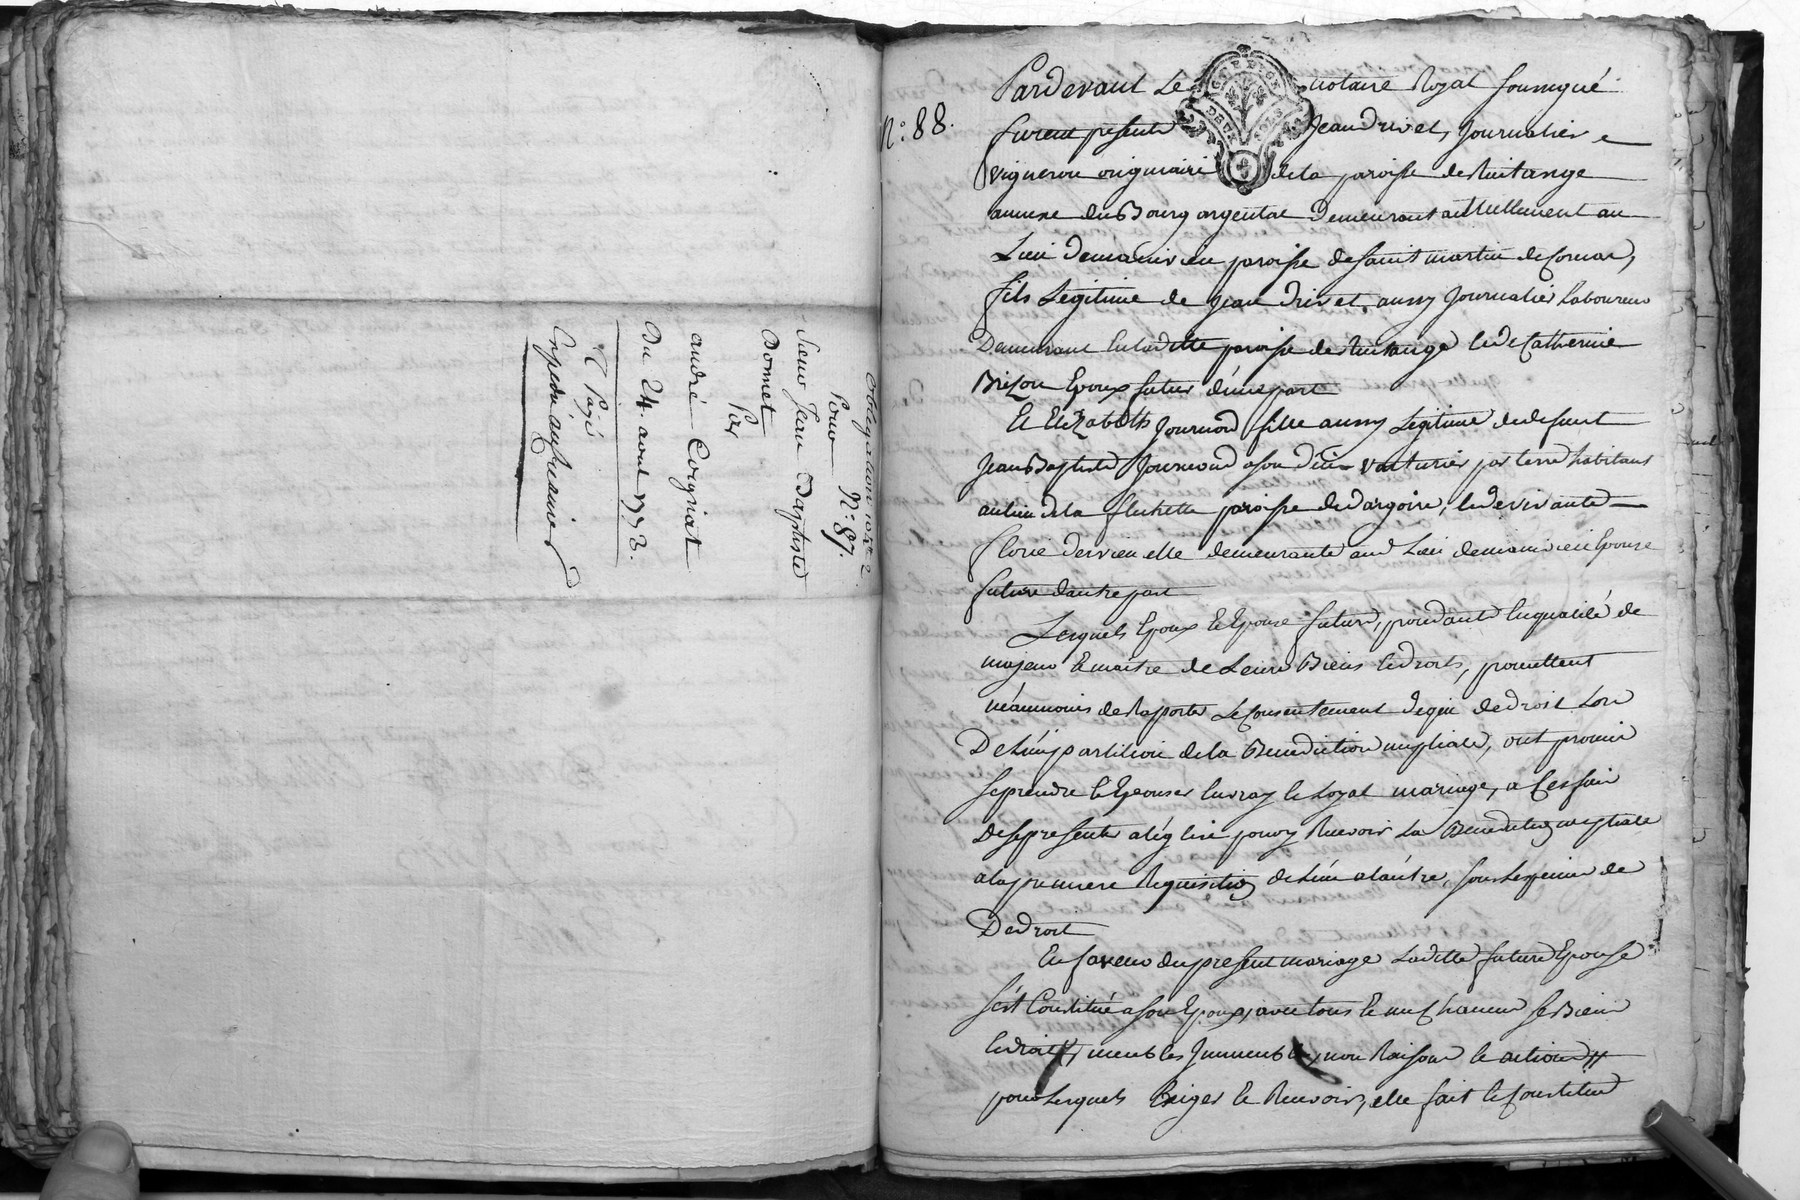 obligation 102# 2
pour N.° 87.
Sieur Jean Baptiste
Bonnet
Par
andré Coignat
Du 24. aout 1773.
C Payé
Expedié au
N.° 88.
GTE DE LYON
DEUX SOLS
Pardevant Le notaire Royal soussigné
furent présents Jean drivet, Journalier e
vigneron originaire de la paroisse de Ruitange
annexe du Bourg argental Demeurant actuellement au
Lieu de en paroisse de saint martin de Cornas,
fils Legitime de Jean drivet, aussy Journalier Laboureur
Demeurant en laditte paroisse de Ruitange et de Catherine
Brison Epoux futur d'une part
Et Elizabeth Journoud fille aussy Légitime de defunt
Jean Baptiste Journoud a son décés voiturier par terre habitant
au lieu de la flechette paroisse de dargoire, et de vivante
Clorie dervieu elle demeurante aud. Lieu de Epouse
future d'autre part
Lesquels Epoux et Epouse futurs, procedants en qualité de
majeurs et maitre de Leurs Biens et droits, promettent
néanmoins de Raporter Le Consentement de qui de droit Lors
De L'impartition de la Benediction nuptiale, ont promis
se prendre et Epouser en vray et Loyal mariage, a Cest fin
de se presenter a léglise pour y Recevoir La Benediction nuptiale
a la premiere Requisition de L'un a L'autre, sous Les peines de
De droit
En faveur du present mariage Laditte future Epouse
s'est Constituée a son Epoux, avec tous et un Chacun ses Biens
et droits, meubles Immeubles, noms Raisons et actions
pour Lesquels Exiger et Recevoir, elle fait et Constitue